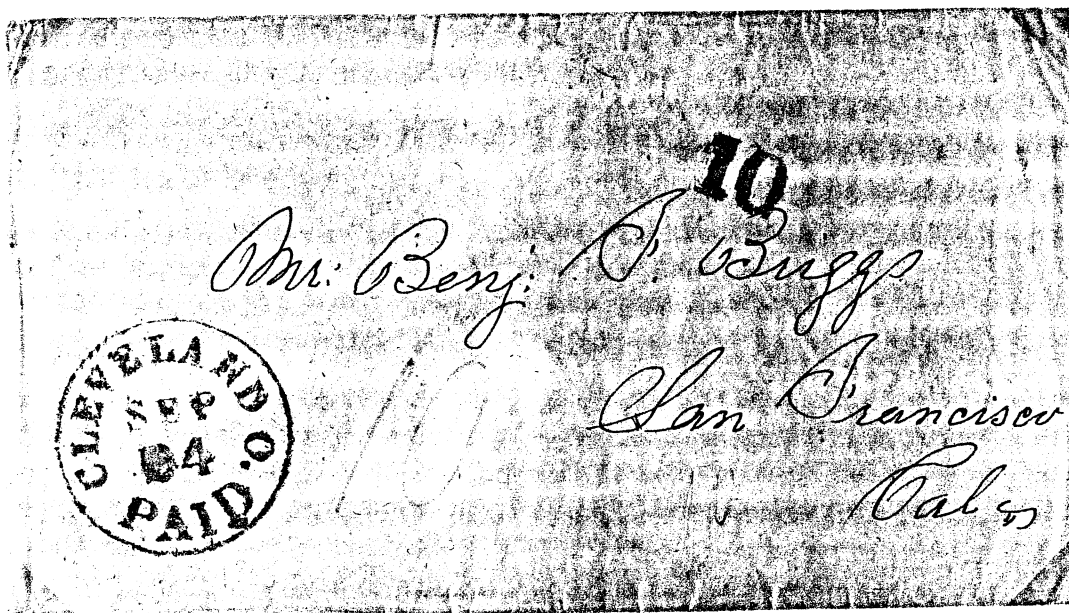 10
Mr: Benj: F. Buggs
San Francisco
Cal
CLEVELAND O.
SEP
PAID
10